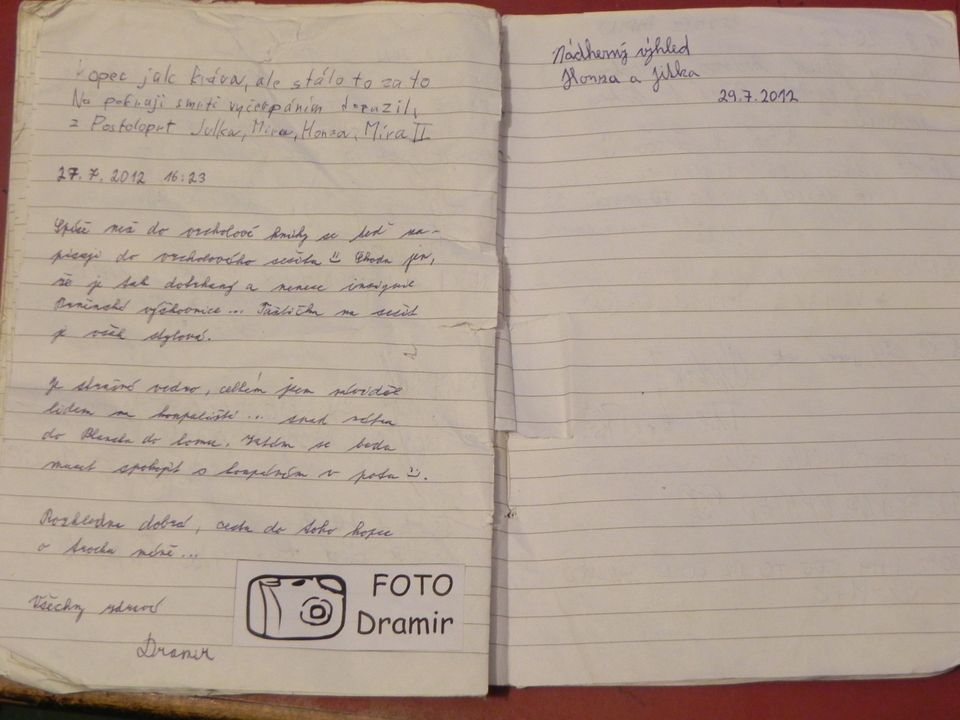 Kopec jak kráva, ale stálo to za to
Na pokraji smrti vyčerpáním dorazili
z Postoloprt Julka, Míra, Honza, Míra II
27.7.2012 16:23
Spíše než do vrcholové knihy se teď za-
pisuji do vrcholového sešitu Škoda jen,
že je tak dotrhaný a nenese insignie
výškovnice... Taštička na sešit
je však stylová.
Je strašné vedro, celkem jsem záviděl
lidem na koupališti... snad zítra
do Blanska do lomu. Zatím se budu
muset spokojit s koupáním v potu.
Rozhledna dobrá, cesta do toho kopce
o trochu méně...
Všechny zdraví
Dramir
FOTO
Dramir
Nádherný výhled
Honza a Jitka
29.7.2012